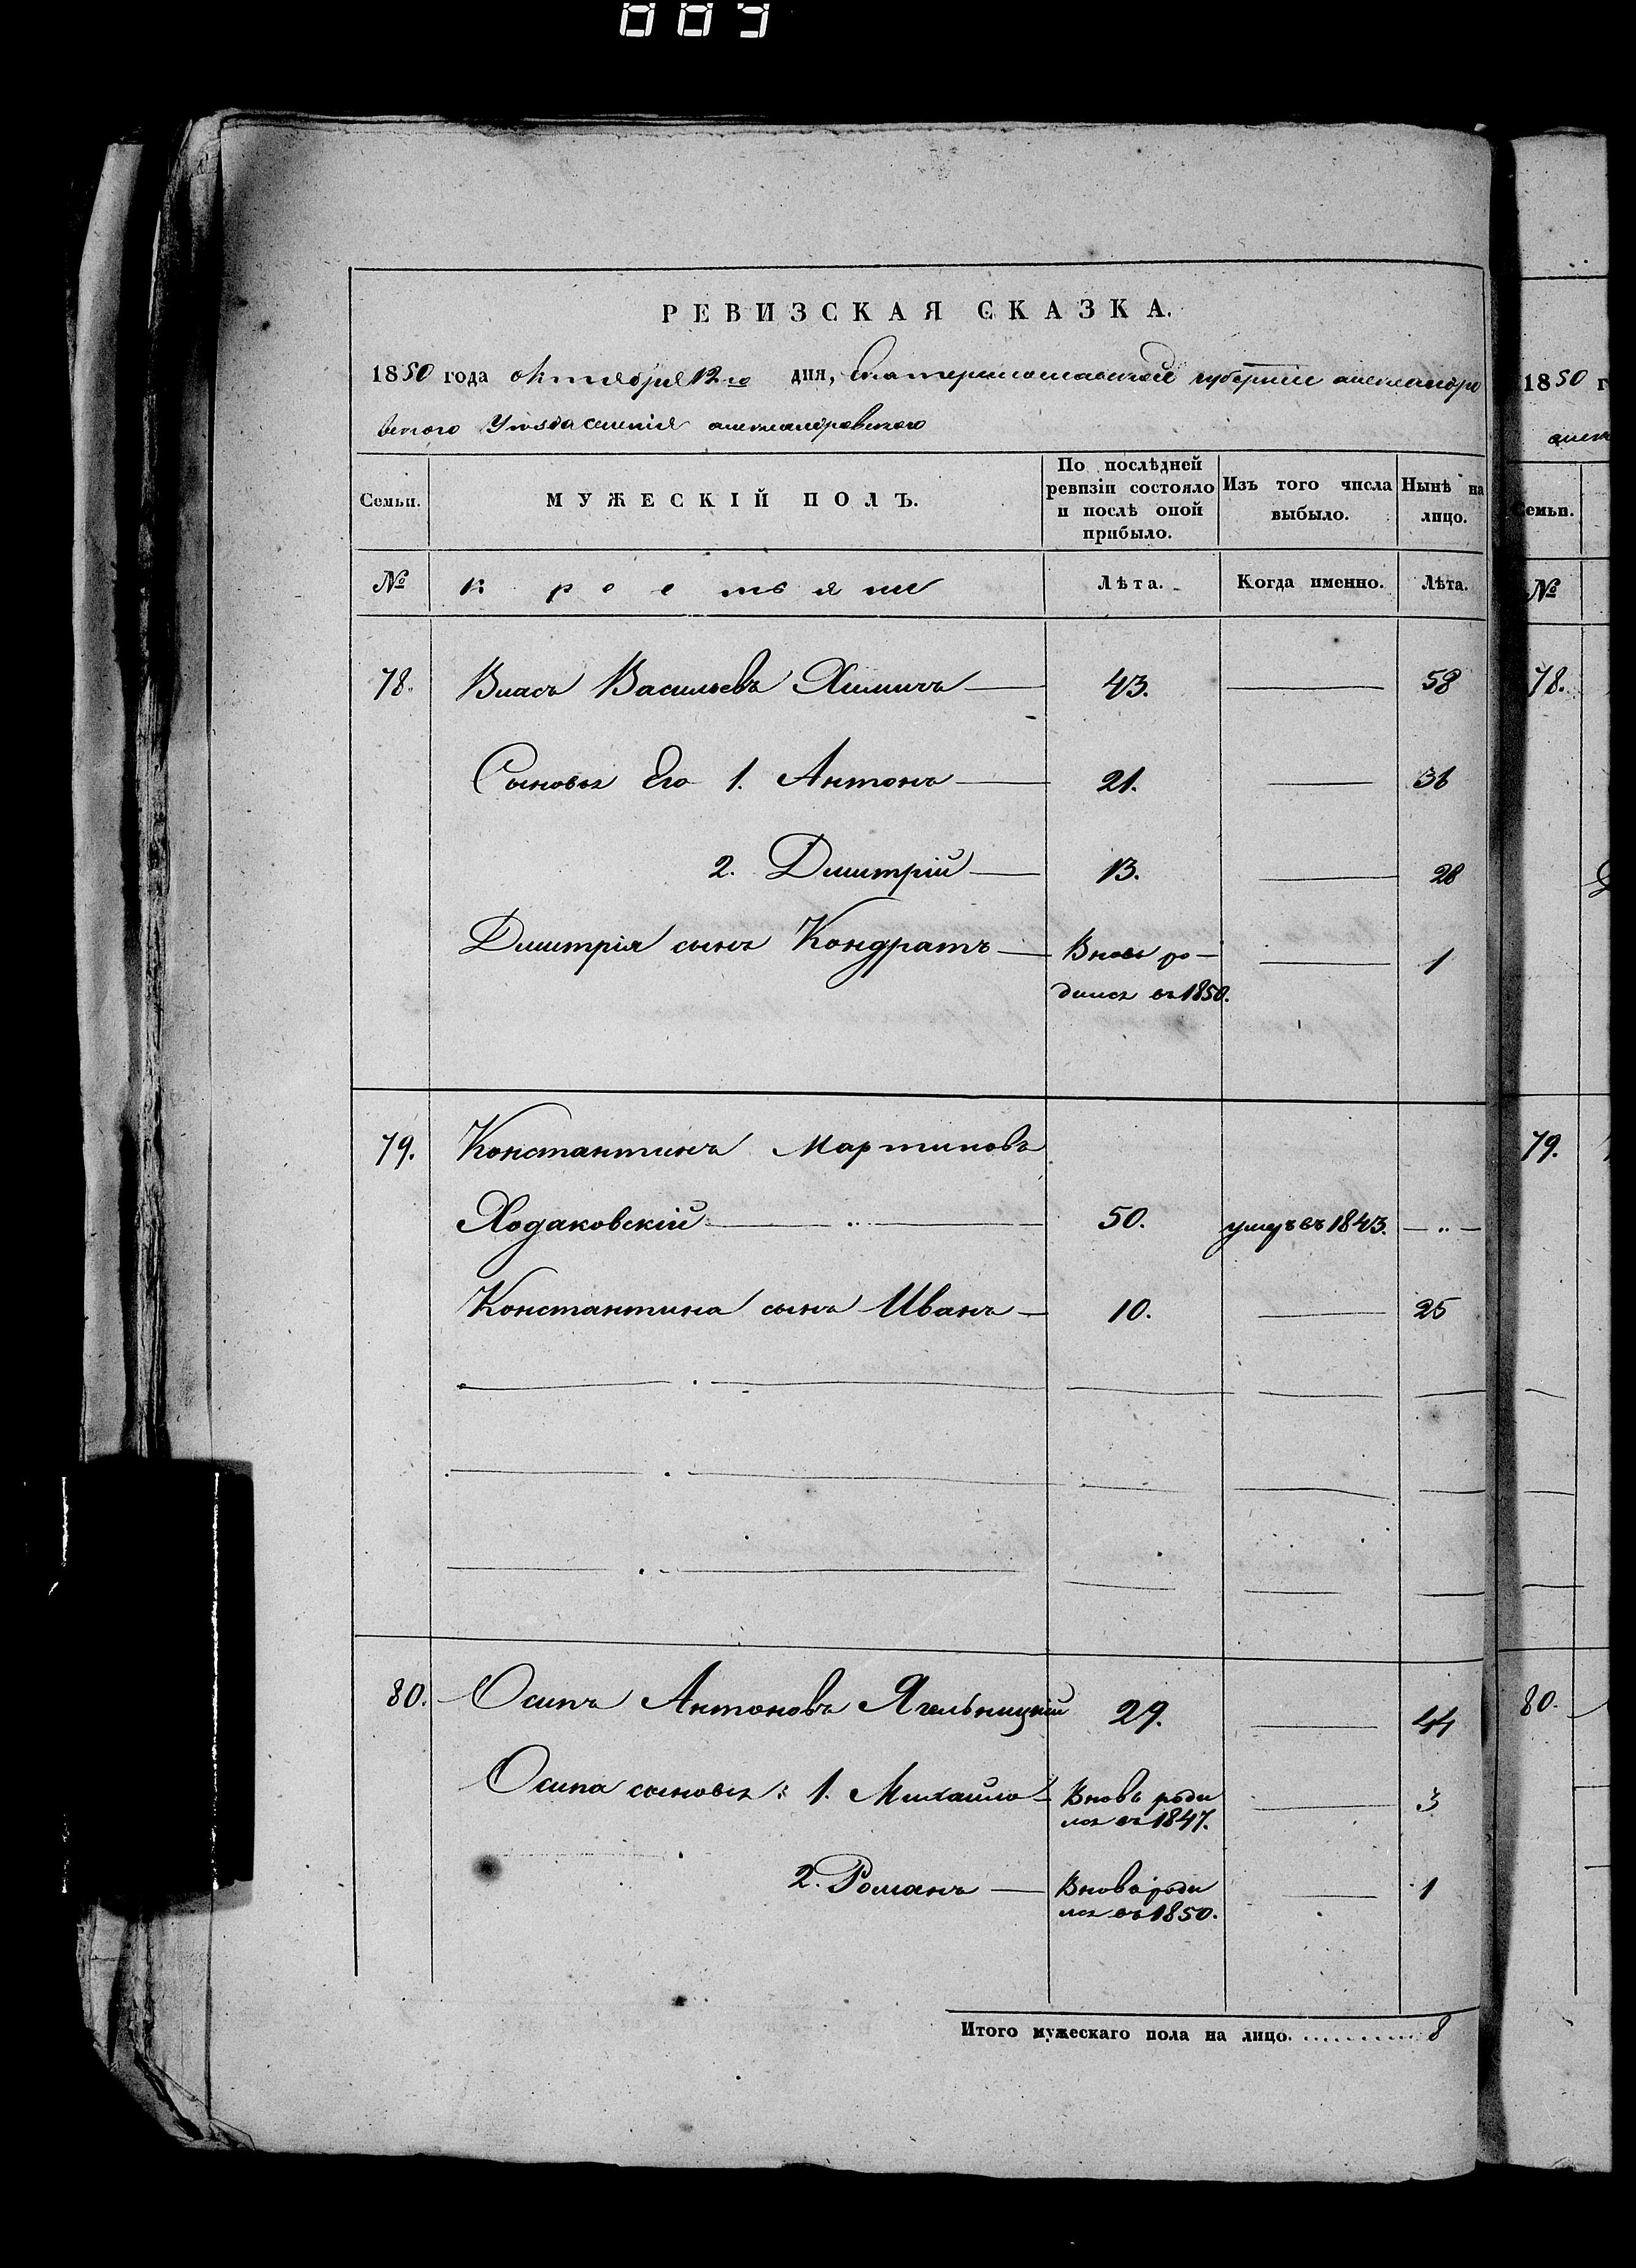 009
РЕВИЗСКАЯ СКАЗКА.
1850 года октября 12го дня, Екатеринославской губерніи александро
вского уезда селенія александровского
Семьи. МУЖЕСКІЙ ПОЛЪ. По послѣдней ревизіи состояло и послѣ оной прибыло. Изъ того числа выбыло. Нынѣ на лицо.
№ крестьяне Лѣта. Когда именно. Лѣта.
78. Власъ Васильевъ Химичъ — 43. — 58
Сыновья Его 1. Антонъ — 21. — 36
2. Дмитрій — 13. — 28
Дмитрія сынъ Кондратъ — Вновь ро- — 1
дился въ 1850.
79. Константинъ Мартиновъ
Ходаковскій — 50. умеръ въ 1843. — „ —
Константина сынъ Иванъ — 10. — 25
80. Осипъ Антоновъ Ягельницкій 29. — 44
Осипа сыновья: 1. Михайло — Вновь роди — 3
лся въ 1847.
2. Романъ — Вновь роди — 1
лся въ 1850.
Итого мужескаго пола на лицо. .......... 8
1850 г
Семьи.
№
78.
79.
80.